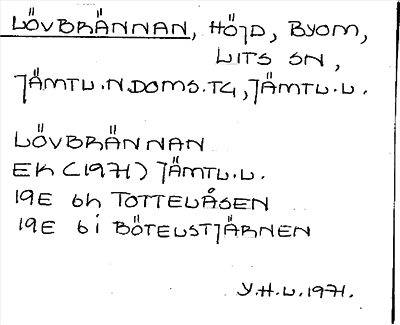 LÖVBRÄNNAN, HÖJD, BYOM,
LITS SN,
JÄMTL.N.DOMS.TG, JÄMTL.L.
LÖVBRÄNNAN
EK (1971) JÄMTL.L.
19E 6h TOTTELÅSEN
19E 6i BÖTELSTJÄRNEN
Y.H.L. 1971.